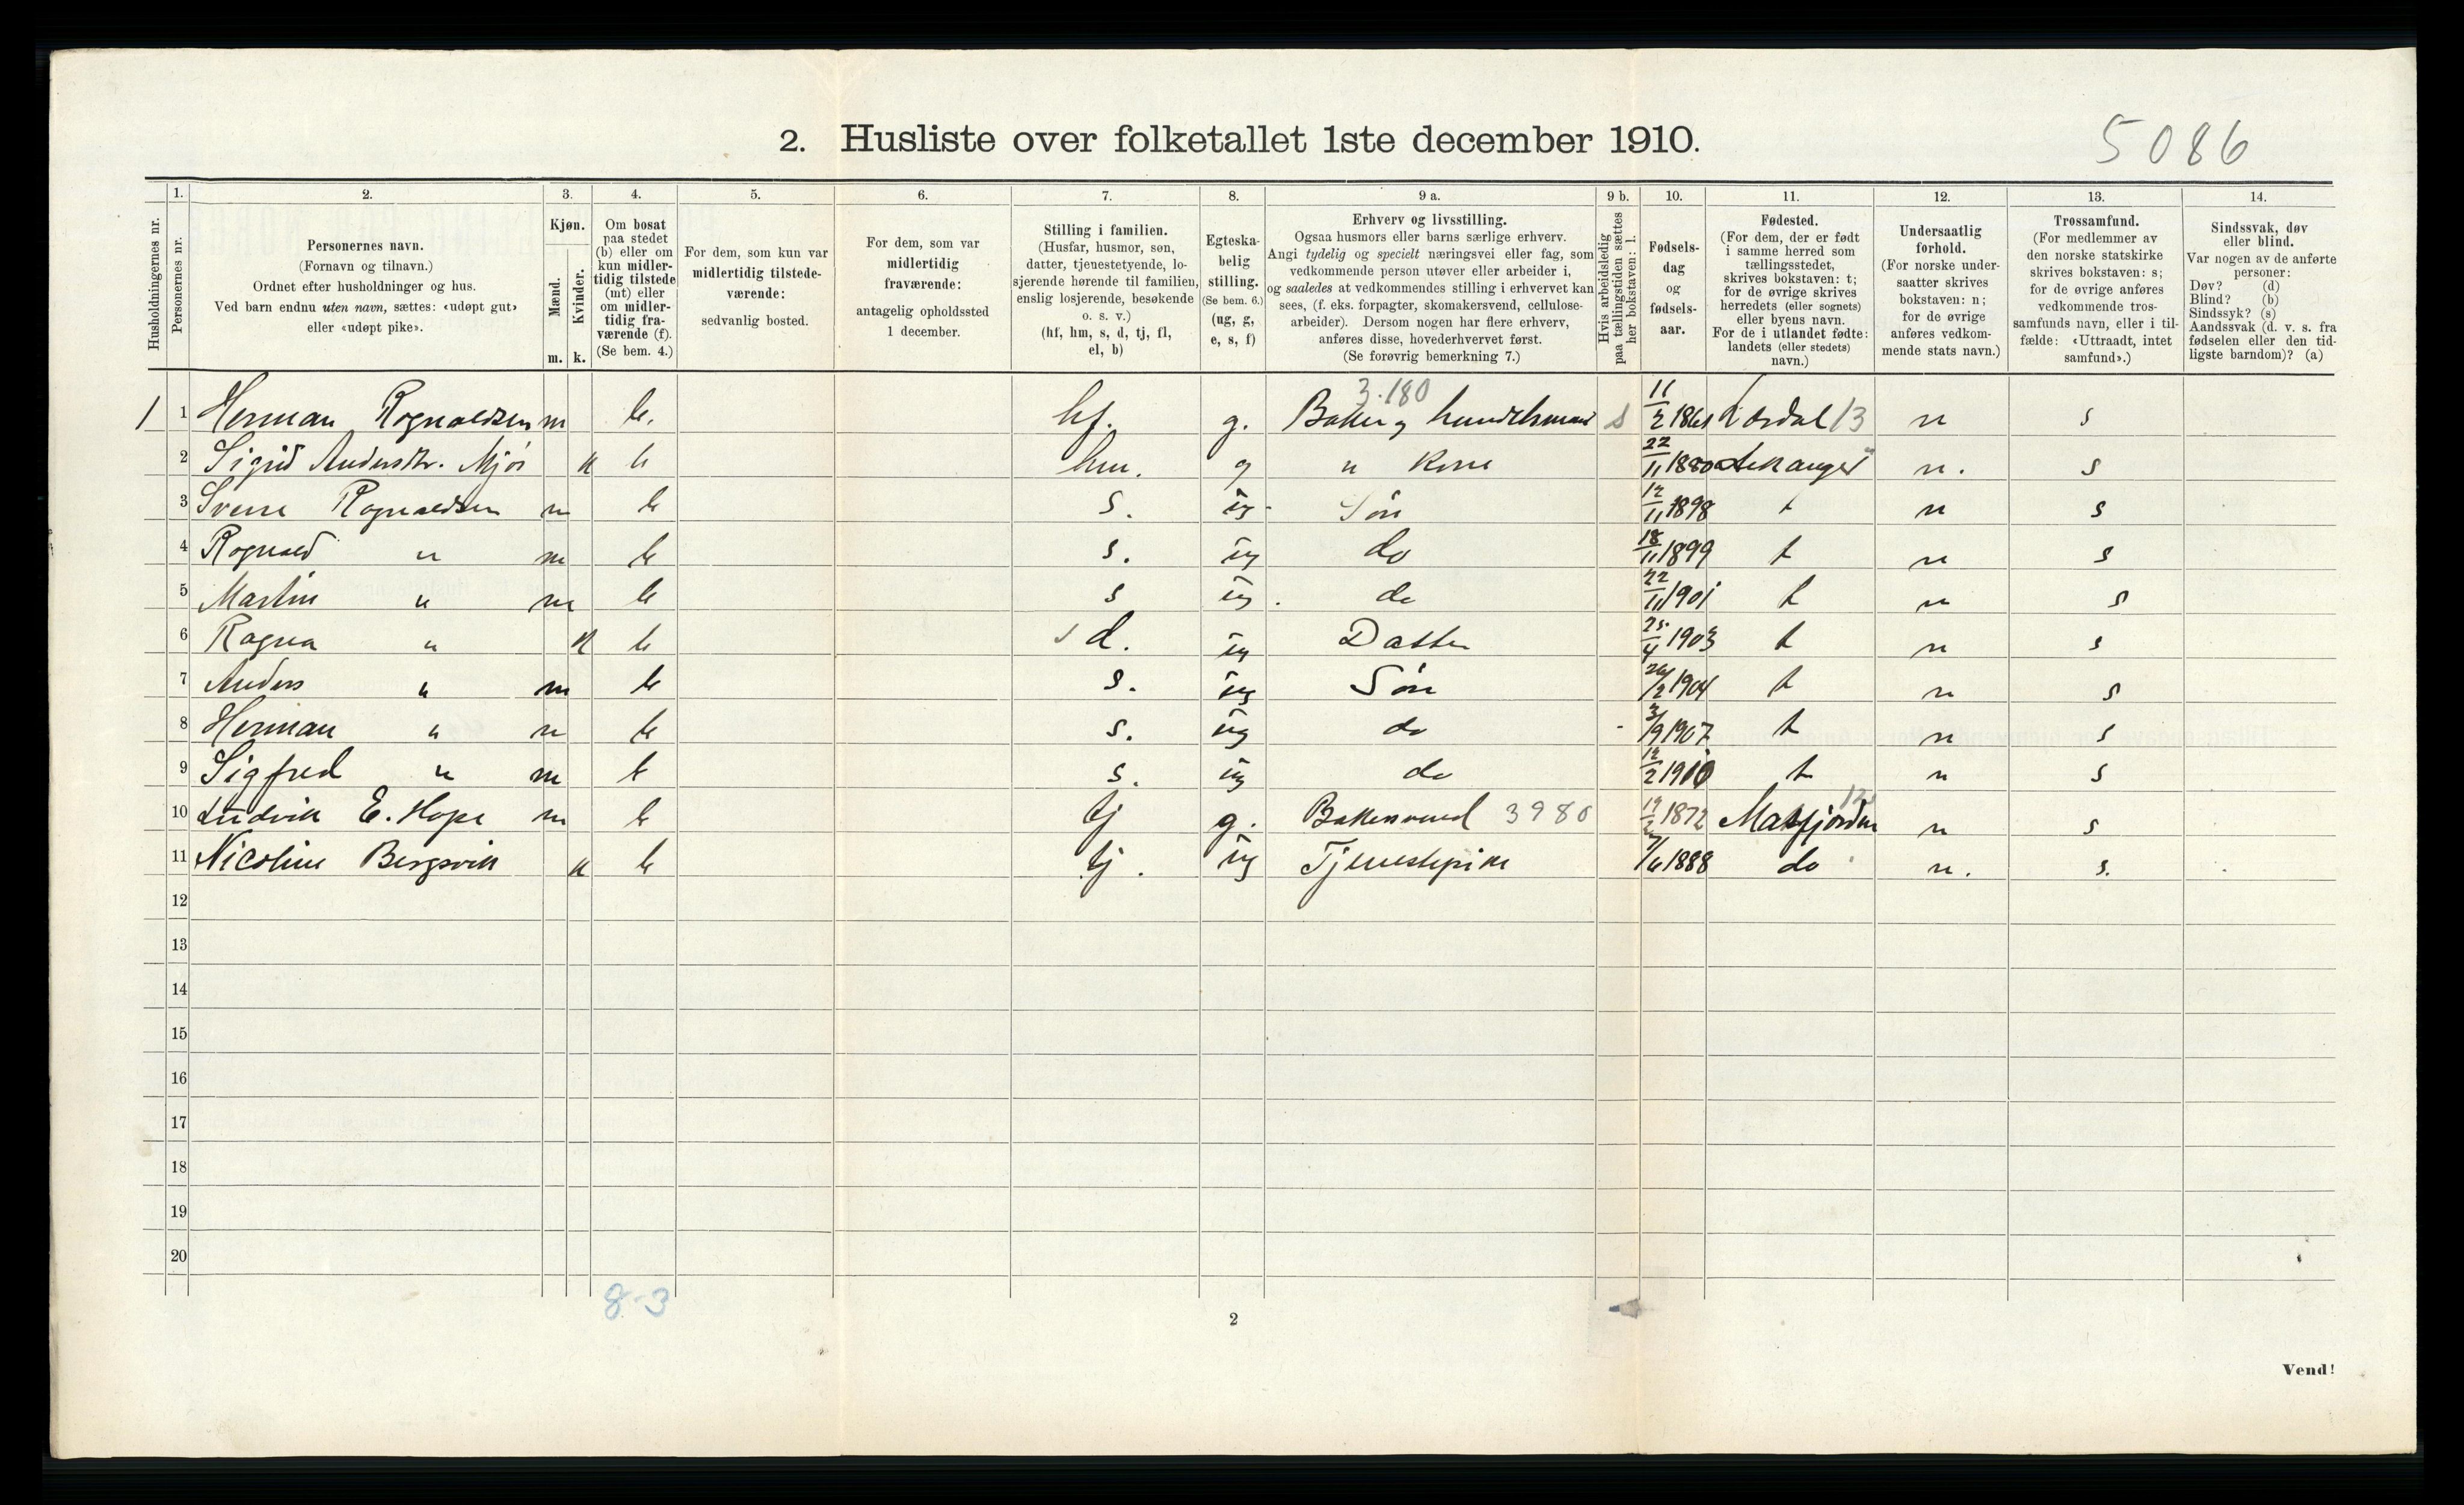 2. Husliste over folketallet 1ste december 1910.
5086
1. 2. 3. 4. 5. 6. 7. 8. 9 a. 9 b. 10. 11. 12. 13. 14.
Husholdningernes nr.
Personernes nr.
Personernes navn.
(Fornavn og tilnavn.)
Ordnet efter husholdninger og hus.
Ved barn endnu uten navn, sættes: «udøpt gut»
eller «udøpt pike».
Kjøn.
Mænd.
Kvinder.
m. k.
Om bosat
paa stedet
(b) eller om
kun midler-
tidig tilstede
(mt) eller
om midler-
tidig fra-
værende (f).
(Se bem. 4.)
For dem, som kun var
midlertidig tilstede-
værende:
sedvanlig bosted.
For dem, som var
midlertidig
fraværende:
antagelig opholdssted
1 december.
Stilling i familien.
(Husfar, husmor, søn,
datter, tjenestetyende, lo-
sjerende hørende til familien,
enslig losjerende, besøkende
o. s. v.)
(hf, hm, s, d, tj, fl,
el, b)
Egteska-
belig
stilling.
(Se bem. 6.)
(ug, g,
e, s, f)
Erhverv og livsstilling.
Ogsaa husmors eller barns særlige erhverv.
Angi tydelig og specielt næringsvei eller fag, som
vedkommende person utøver eller arbeider i,
og saaledes at vedkommendes stilling i erhvervet kan
sees, (f. eks. forpagter, skomakersvend, cellulose-
arbeider). Dersom nogen har flere erhverv,
anføres disse, hovederhvervet først.
(Se forøvrig bemerkning 7.)
Hvis arbeidsledig
paa tællingstiden sættes
her bokstaven: l.
Fødsels-
dag
og
fødsels-
aar.
Fødested.
(For dem, der er født
i samme herred som
tællingsstedet,
skrives bokstaven: t;
for de øvrige skrives
herredets (eller sognets)
eller byens navn.
For de i utlandet fødte:
landets (eller stedets)
navn.)
Undersaatlig
forhold.
(For norske under-
saatter skrives
bokstaven: n;
for de øvrige
anføres vedkom-
mende stats navn.)
Trossamfund.
(For medlemmer av
den norske statskirke
skrives bokstaven: s;
for de øvrige anføres
vedkommende tros-
samfunds navn, eller i til-
fælde: «Uttraadt, intet
samfund».)
Sindssvak, døv
eller blind.
Var nogen av de anførte
personer:
Døv? (d)
Blind? (b)
Sindssyk? (s)
Aandssvak (d. v. s. fra
fødselen eller den tid-
ligste barndom)? (a)
3.180
1 1 Herman Rognaldsen m b. hf. g. Baker og handelsmand 11/2 Lærdal 13 n s
2 Sigrid Andersdtr. Mjøs k b hm. g " Kone 22/11 1880 n. s
3 Sverre Rognaldsen m b s. ug. Søn 12/11 1898 t n s
4 Rognald " m b s. ug do 18/11 1899 t n s
5 Martin " m b s ug. do 22/11 1901 t n s
6 Ragna " k b d. ug Datter 25/4 1903 t n s
7 Anders " m b s. ug Søn 26/12 1904 t n s
8 Herman " m b s. ug do 3/9 1907 t n s
9 Sigfred " m b s. ug do 12/2 1910 t n s
10 Ludvik E. Hope m b tj g. Bakersvend 3980 1872 Masfjorden 12 n s
11 Nicoline Bergsvik k b tj. ug Tjenestepike 7/6 1888 do n. s.
12
13
14
15
16
17
18
19
20
8-3
2
Vend!